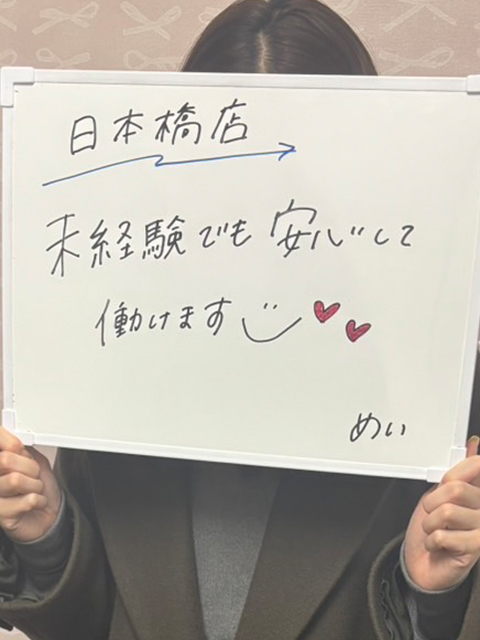 日本橋店
未経験でも安心して
働けます
めい